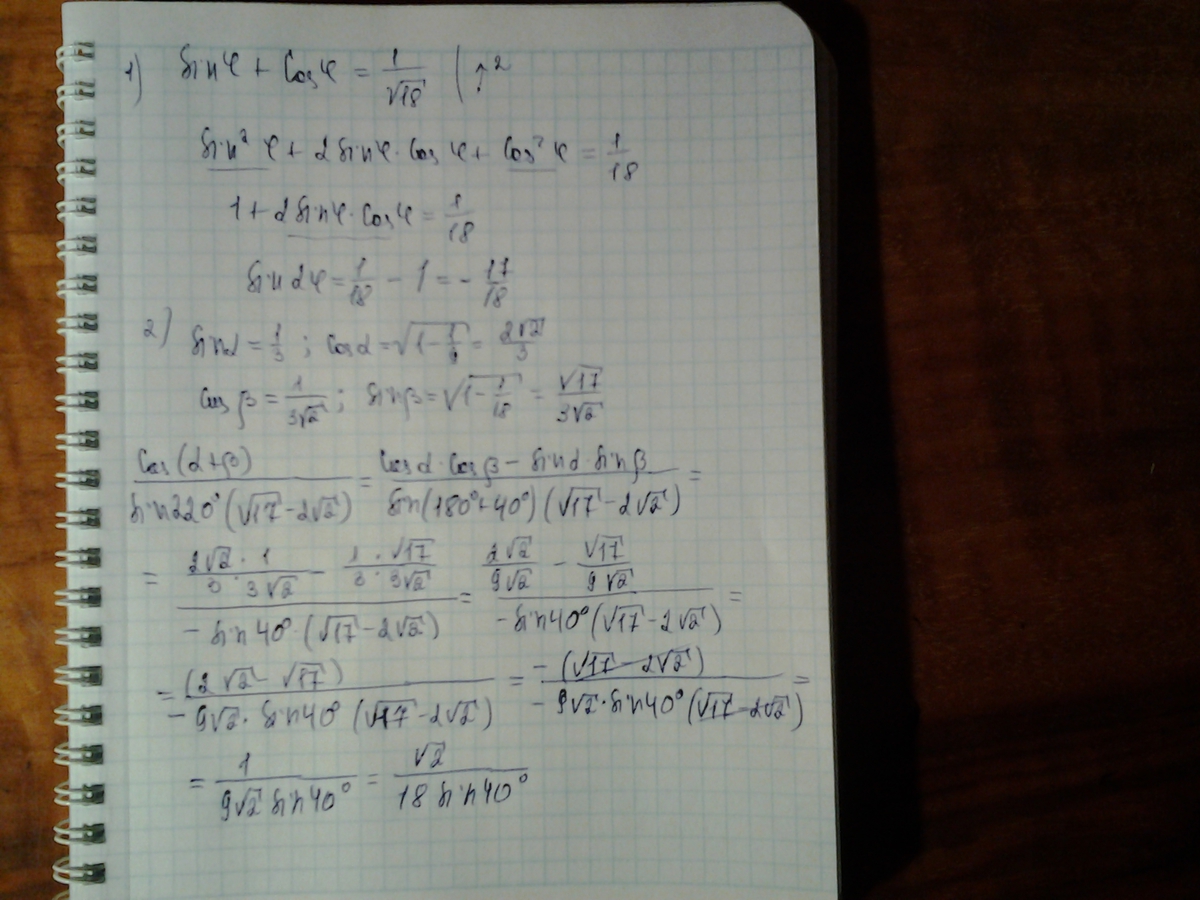 1) sin φ + cos φ = 1/√18 (↑2
sin² φ + 2 sin φ · cos φ + cos² φ = 1/18
1 + 2 sin φ · cos φ = 1/18
sin 2φ = 1/18 − 1 = − 17/18
2) sin α = 1/3 ; cos α = √(1 − 1/9) = 2√2/3
cos β = 1/(3√2) ; sin β = √(1 − 1/18) = √17/(3√2)
cos(α+β)/(sin 220° (√17 − 2√2)) = (cos α · cos β − sin α · sin β)/(sin(180° + 40°) (√17 − 2√2)) =
= ((2√2 · 1)/(3 · 3√2) − (1 · √17)/(3 · 3√2))/(− sin 40° · (√17 − 2√2)) = (2√2/(9√2) − √17/(9√2))/(− sin 40° (√17 − 2√2)) =
= (2√2 − √17)/(− 9√2 · sin 40° (√17 − 2√2)) = − (√17 − 2√2)/(− 9√2 · sin 40° (√17 − 2√2)) =
= 1/(9√2 sin 40°) = √2/(18 sin 40°)